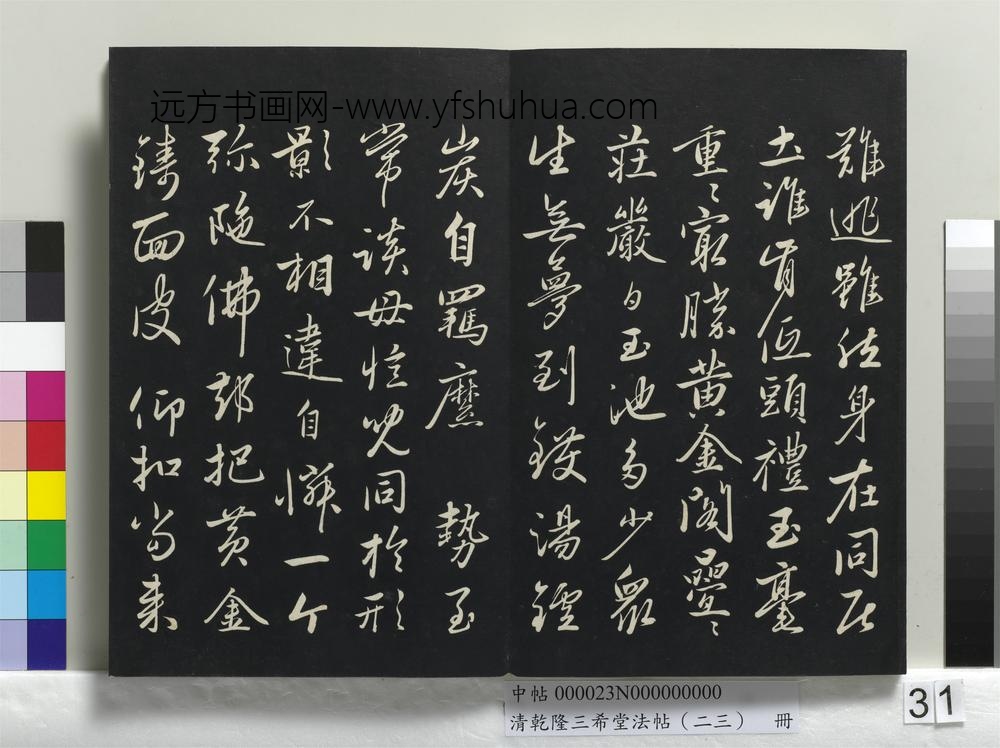 远方书画网-www.yfshuhua.com
難逃雖然身在同居
土誰肯低頭禮玉毫
重〻最勝黄金閣疊〻
莊嚴白玉池多少衆
生無夢到鑊湯鑪
炭自羈縻 勢至
常談母憶児同於形
影不相違自憐一个
弥陁佛却把黄金
鑄面皮 仰扣當来
中帖 000023N000000000
清乾隆三希堂法帖（二三） 冊
31